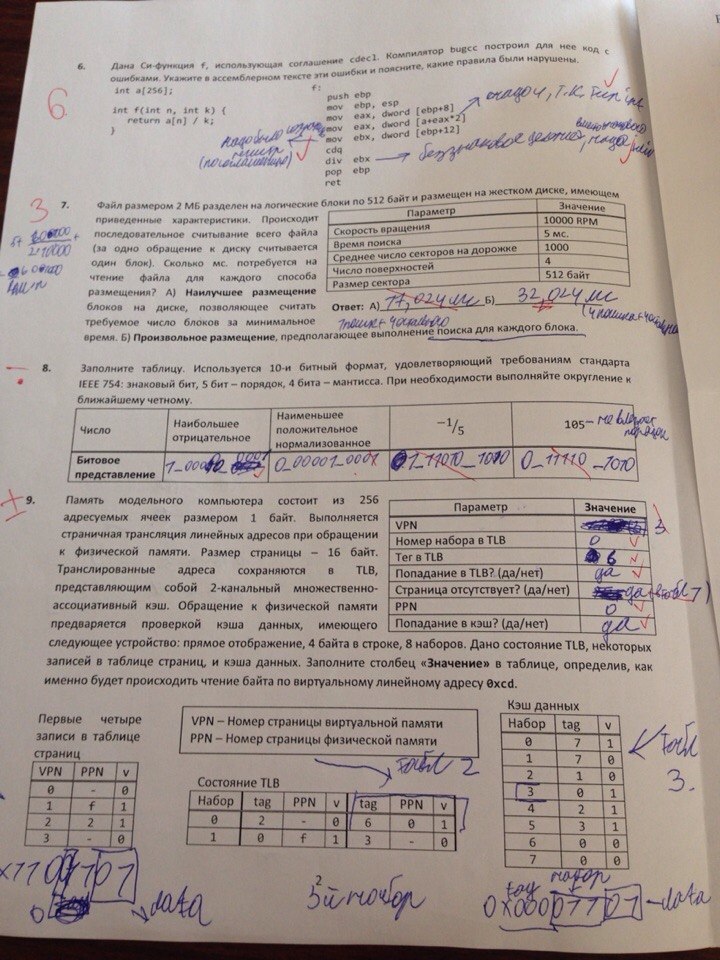 6. Дана Си-функция f, использующая соглашение cdecl. Компилятор bugcc построил для нее код с
ошибками. Укажите в ассемблерном тексте эти ошибки и поясните, какие правила были нарушены.
6
int a[256];
int f(int n, int k) {
return a[n] / k;
}
f:
push ebp
mov ebp, esp
mov eax, dword [ebp+8]
mov eax, dword [a+eax*2]
mov ebx, dword [ebp+12]
cdq
div ebx
pop ebp
ret
3
7. Файл размером 2 МБ разделен на логические блоки по 512 байт и размещен на жестком диске, имеющем
приведенные характеристики. Происходит
последовательное считывание всего файла
(за одно обращение к диску считывается
один блок). Сколько мс. потребуется на
чтение файла для каждого способа
размещения? А) Наилучшее размещение
блоков на диске, позволяющее считать
требуемое число блоков за минимальное
время. Б) Произвольное размещение, предполагающее выполнение поиска для каждого блока.
Параметр Значение
Скорость вращения 10000 RPM
Время поиска 5 мс.
Среднее число секторов на дорожке 1000
Число поверхностей 4
Размер сектора 512 байт
Ответ: А) 17,024 мс Б) 32,024 мс
8. Заполните таблицу. Используется 10-и битный формат, удовлетворяющий требованиям стандарта
IEEE 754: знаковый бит, 5 бит – порядок, 4 бита – мантисса. При необходимости выполняйте округление к
ближайшему четному.
Число Наибольшее отрицательное Наименьшее положительное нормализованное −1/5 105
Битовое представление 0_00001_0001 1_11010_1010 0_11110_1010
9. Память модельного компьютера состоит из 256
адресуемых ячеек размером 1 байт. Выполняется
страничная трансляция линейных адресов при обращении
к физической памяти. Размер страницы – 16 байт.
Транслированные адреса сохраняются в TLB,
представляющим собой 2-канальный множественно-
ассоциативный кэш. Обращение к физической памяти
предваряется проверкой кэша данных, имеющего
следующее устройство: прямое отображение, 4 байта в строке, 8 наборов. Дано состояние TLB, некоторых
записей в таблице страниц, и кэша данных. Заполните столбец «Значение» в таблице, определив, как
именно будет происходить чтение байта по виртуальному линейному адресу 0xcd.
Параметр Значение
VPN
Номер набора в TLB 0
Тег в TLB 6
Попадание в TLB? (да/нет) да
Страница отсутствует? (да/нет) да
PPN 0
Попадание в кэш? (да/нет) да
Первые четыре
записи в таблице
страниц
VPN PPN v
0 - 0
1 f 1
2 2 1
3 - 0
VPN – Номер страницы виртуальной памяти
PPN – Номер страницы физической памяти
табл 2
Состояние TLB
Набор tag PPN v tag PPN v
0 2 - 0 6 0 1
1 0 f 1 3 - 0
Кэш данных
Набор tag v
0 7 1
1 7 0
2 1 0
3 0 1
4 2 1
5 3 1
6 0 0
7 0 0
табл
3.
data
tag набор
0x00001101 data